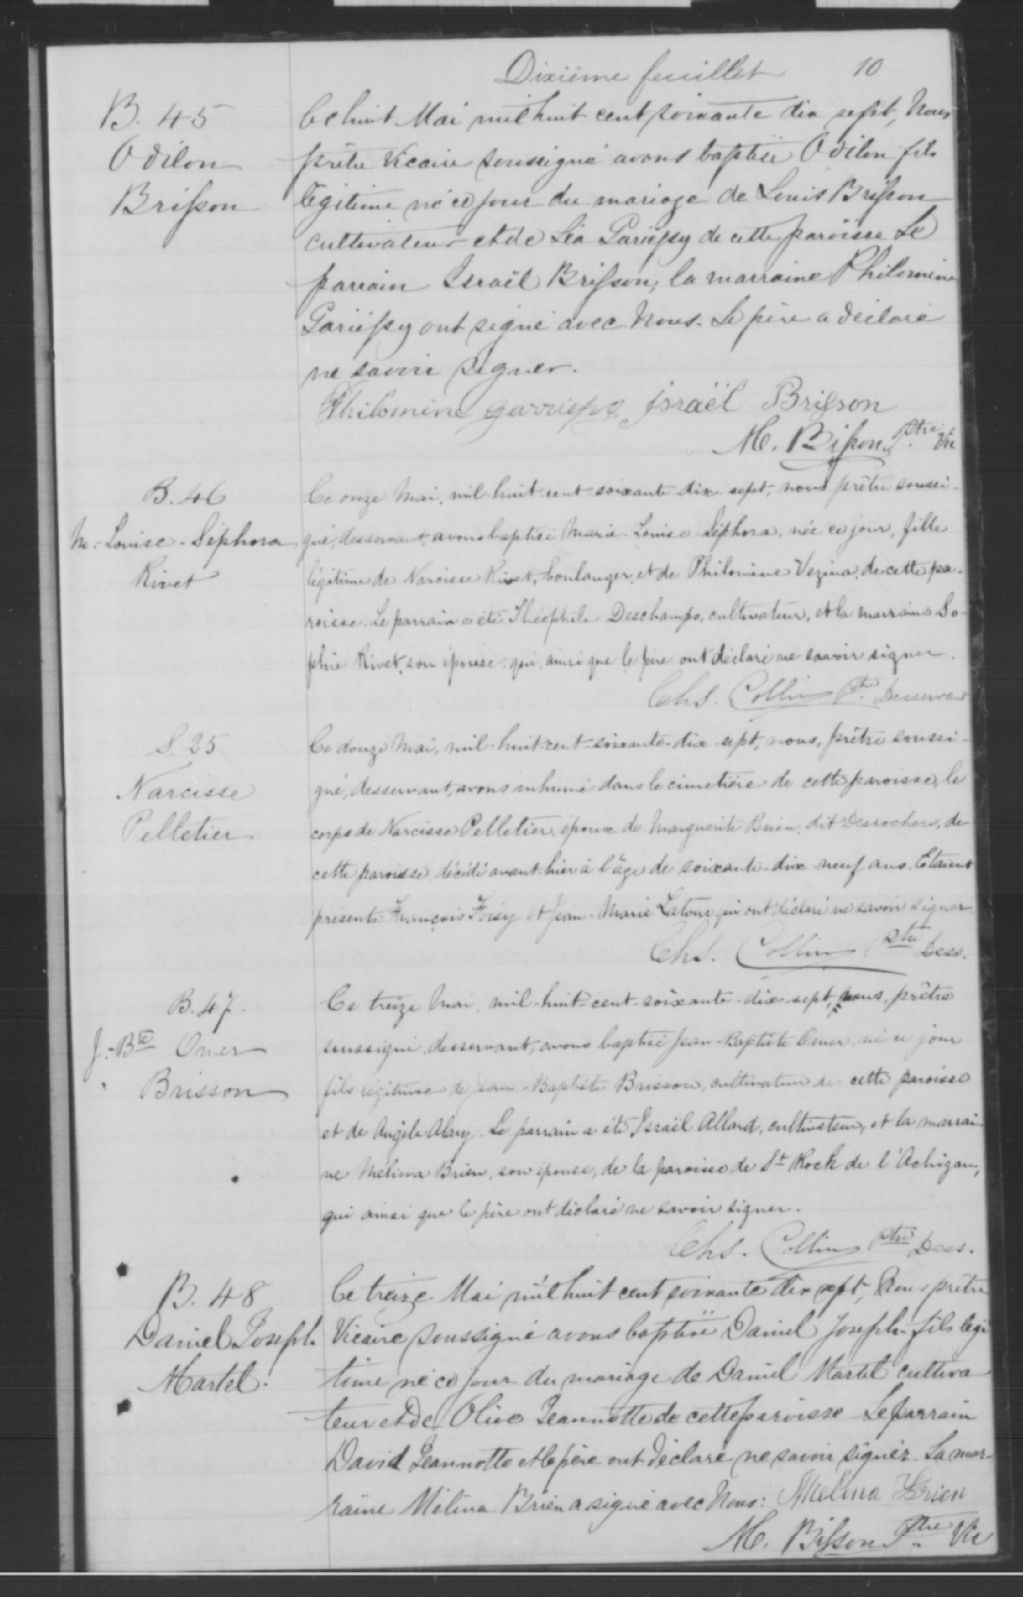 Dixième feuillet 10
B. 45
Odilon
Brisson
Ce huit Mai mil huit cent soixante dix sept, Nous
prêtre Vicaire soussigné avons baptisé Odilon fils
légitime né ce jour du mariage de Louis Brisson
cultivateur et de Léa Gariépy de cette paroisse Le
parrain Israël Brisson, la marraine Philomène
Gariépy ont signé avec Nous. Le père a déclaré
ne savoir signer.
Philomène garriepy israël Brisson
M. Brisson Ptre Vic
B. 46
M. Louise-Séphora
Rivet
Ce onze Mai, mil-huit-cent-soixante-dix-sept, nous prêtre soussi-
gné, desservant, avons baptisé Marie-Louise-Séphora, née ce jour, fille
légitime de Narcisse Rivet, boulanger, et de Philomène Vezina, de cette pa-
roisse. Le parrain a été Théophile Deschamps, cultivateur, et la marraine So-
phie Rivet, son épouse, qui, ainsi que le père ont déclaré ne savoir signer.
Chs. Collin Ptre Desservant
S. 25
Narcisse
Pelletier
Ce douze Mai, mil-huit-cent-soixante-dix-sept, nous, prêtre soussi-
gné, desservant, avons inhumé dans le cimetière de cette paroisse, le
corps de Narcisse Pelletier, époux de Marguerite Brien, dit Desrochers, de
cette paroisse, décédé avant-hier à l'âge de soixante-dix neuf ans. Etaient
présents François Foisy et Jean-Marie Latour qui ont déclaré ne savoir signer
Chs. Collin Ptre Dess.
B. 47.
J.-Bte Omer
Brisson
Ce treize Mai, mil-huit-cent-soixante-dix-sept, nous, prêtre
soussigné, desservant, avons baptisé Jean-Baptiste Omer, né ce jour
fils légitime de Jean-Baptiste Brisson, cultivateur de cette paroisse
et de Angèle Alary. Le parrain a été Israël Allard, cultivateur, et la marrai-
ne Melina Brien, son épouse, de la paroisse de St Roch de l'Achigan,
qui ainsi que le père ont déclaré ne savoir signer.
Chs. Collin Ptre Dess.
B. 48
Daniel Joseph
Martel.
Ce treize Mai mil huit cent soixante dix sept, Nous prêtre
Vicaire soussigné avons baptisé Daniel Joseph fils légi
time né ce jour du mariage de Daniel Martel cultiva
teur et de Olive Jeannotte de cette paroisse Le parrain
David Jeannotte et le père ont déclaré ne savoir signer. La mar-
raine Mélina Brien a signé avec Nous: Melina Brien
M. Brisson Ptre Vic